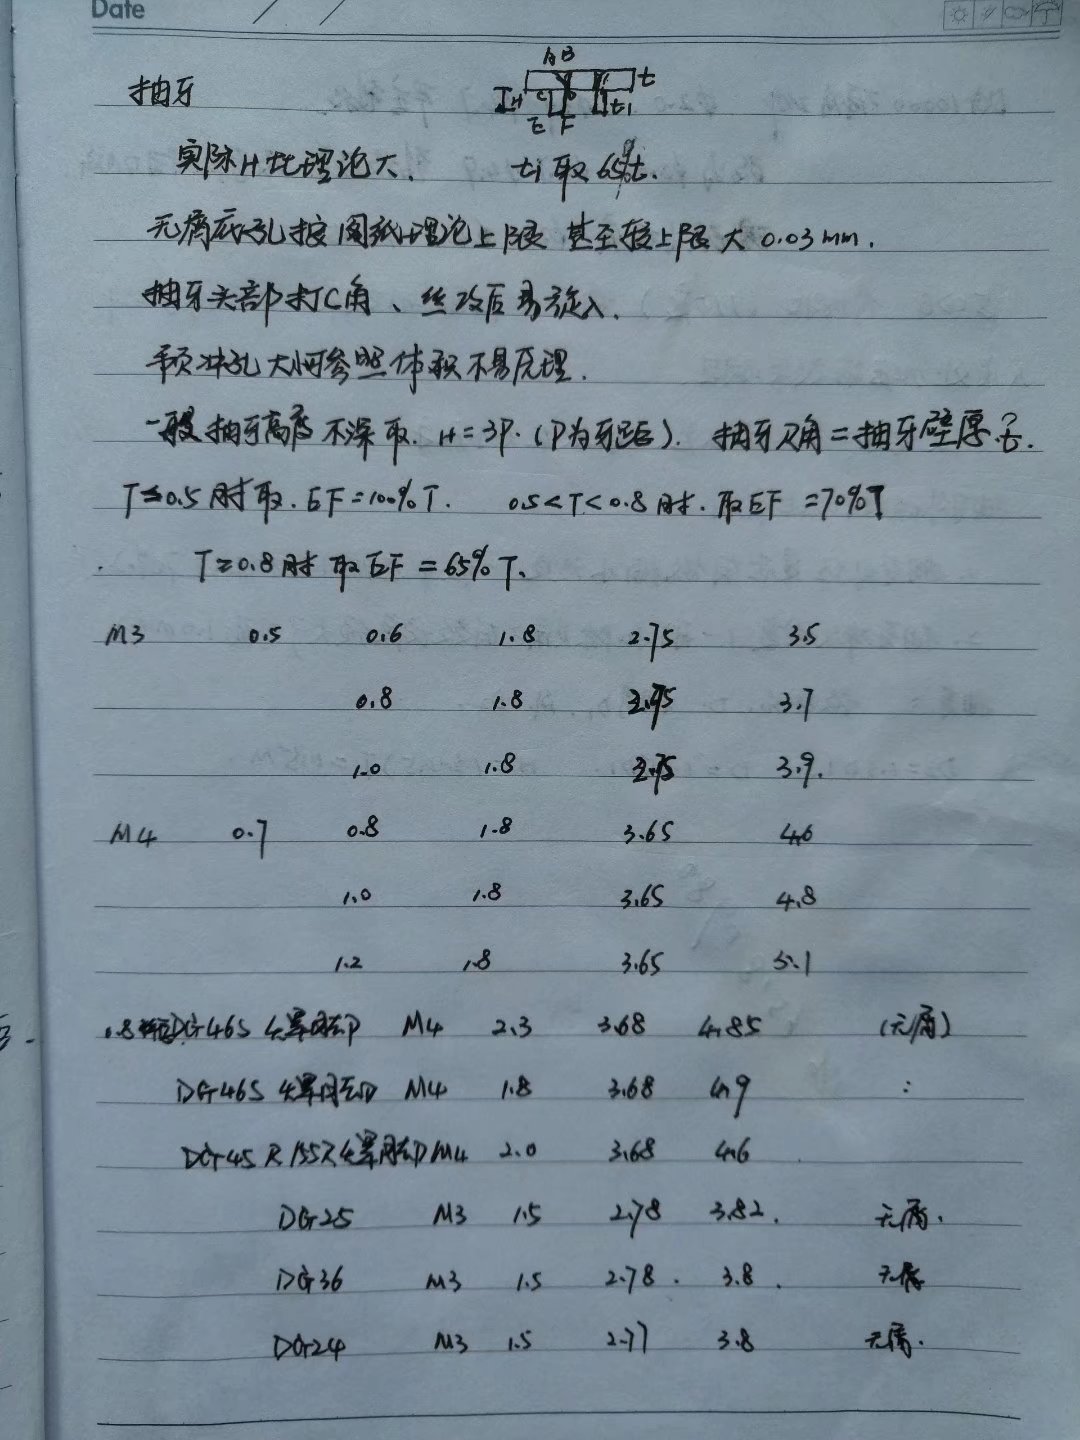 Date / /
抽牙
A B
t
H C D t1
E F
实际H比理论大. t1取65%t.
无屑底孔按图纸理论上限 甚至较上限大 0.03mm.
抽牙头部打C角、丝攻后易旋入.
预冲孔大小可参照体积不易原理.
一般抽牙高度不深取. H=3P.(P为牙距). 抽牙R角=抽牙壁厚
T≤0.5时取. EF=100%T. 0.5<T<0.8时. 取EF =70%T
T≥0.8时 取EF =65%T.
M3 0.5 0.6 1.8 2.75 3.5
0.8 1.8 2.75 3.7
1.0 1.8 2.75 3.9.
M4 0.7 0.8 1.8 3.65 4.6
1.0 1.8 3.65 4.8
1.2 1.8 3.65 5.1
0.8 DG465 M4 2.3 3.68 4.85 (无屑)
DG465 M4 1.8 3.68 4.9 :
DG45 R155R M4 2.0 3.68 4.6
DG25 M3 1.5 2.78 3.82. 无屑.
DG36 M3 1.5 2.78. 3.8. 无屑
DG24 M3 1.5 2.77 3.8 无屑.